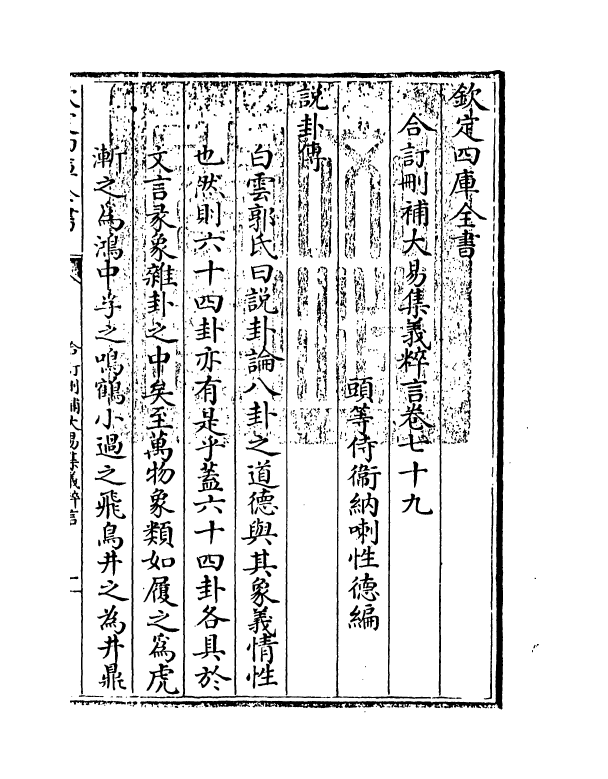 欽定四庫全書
合訂刪補大易集義粹言卷七十九
頭等侍衞納喇性德編
說卦傳
白雲郭氏曰說卦論八卦之道德與其象義情性
也然則六十四卦亦有是乎蓋六十四卦各具於
文言彖象雜卦之中矣至萬物象類如履之爲虎
漸之爲鴻中孚之鳴鶴小過之飛鳥井之為井鼎
合訂刪補大易集義粹言